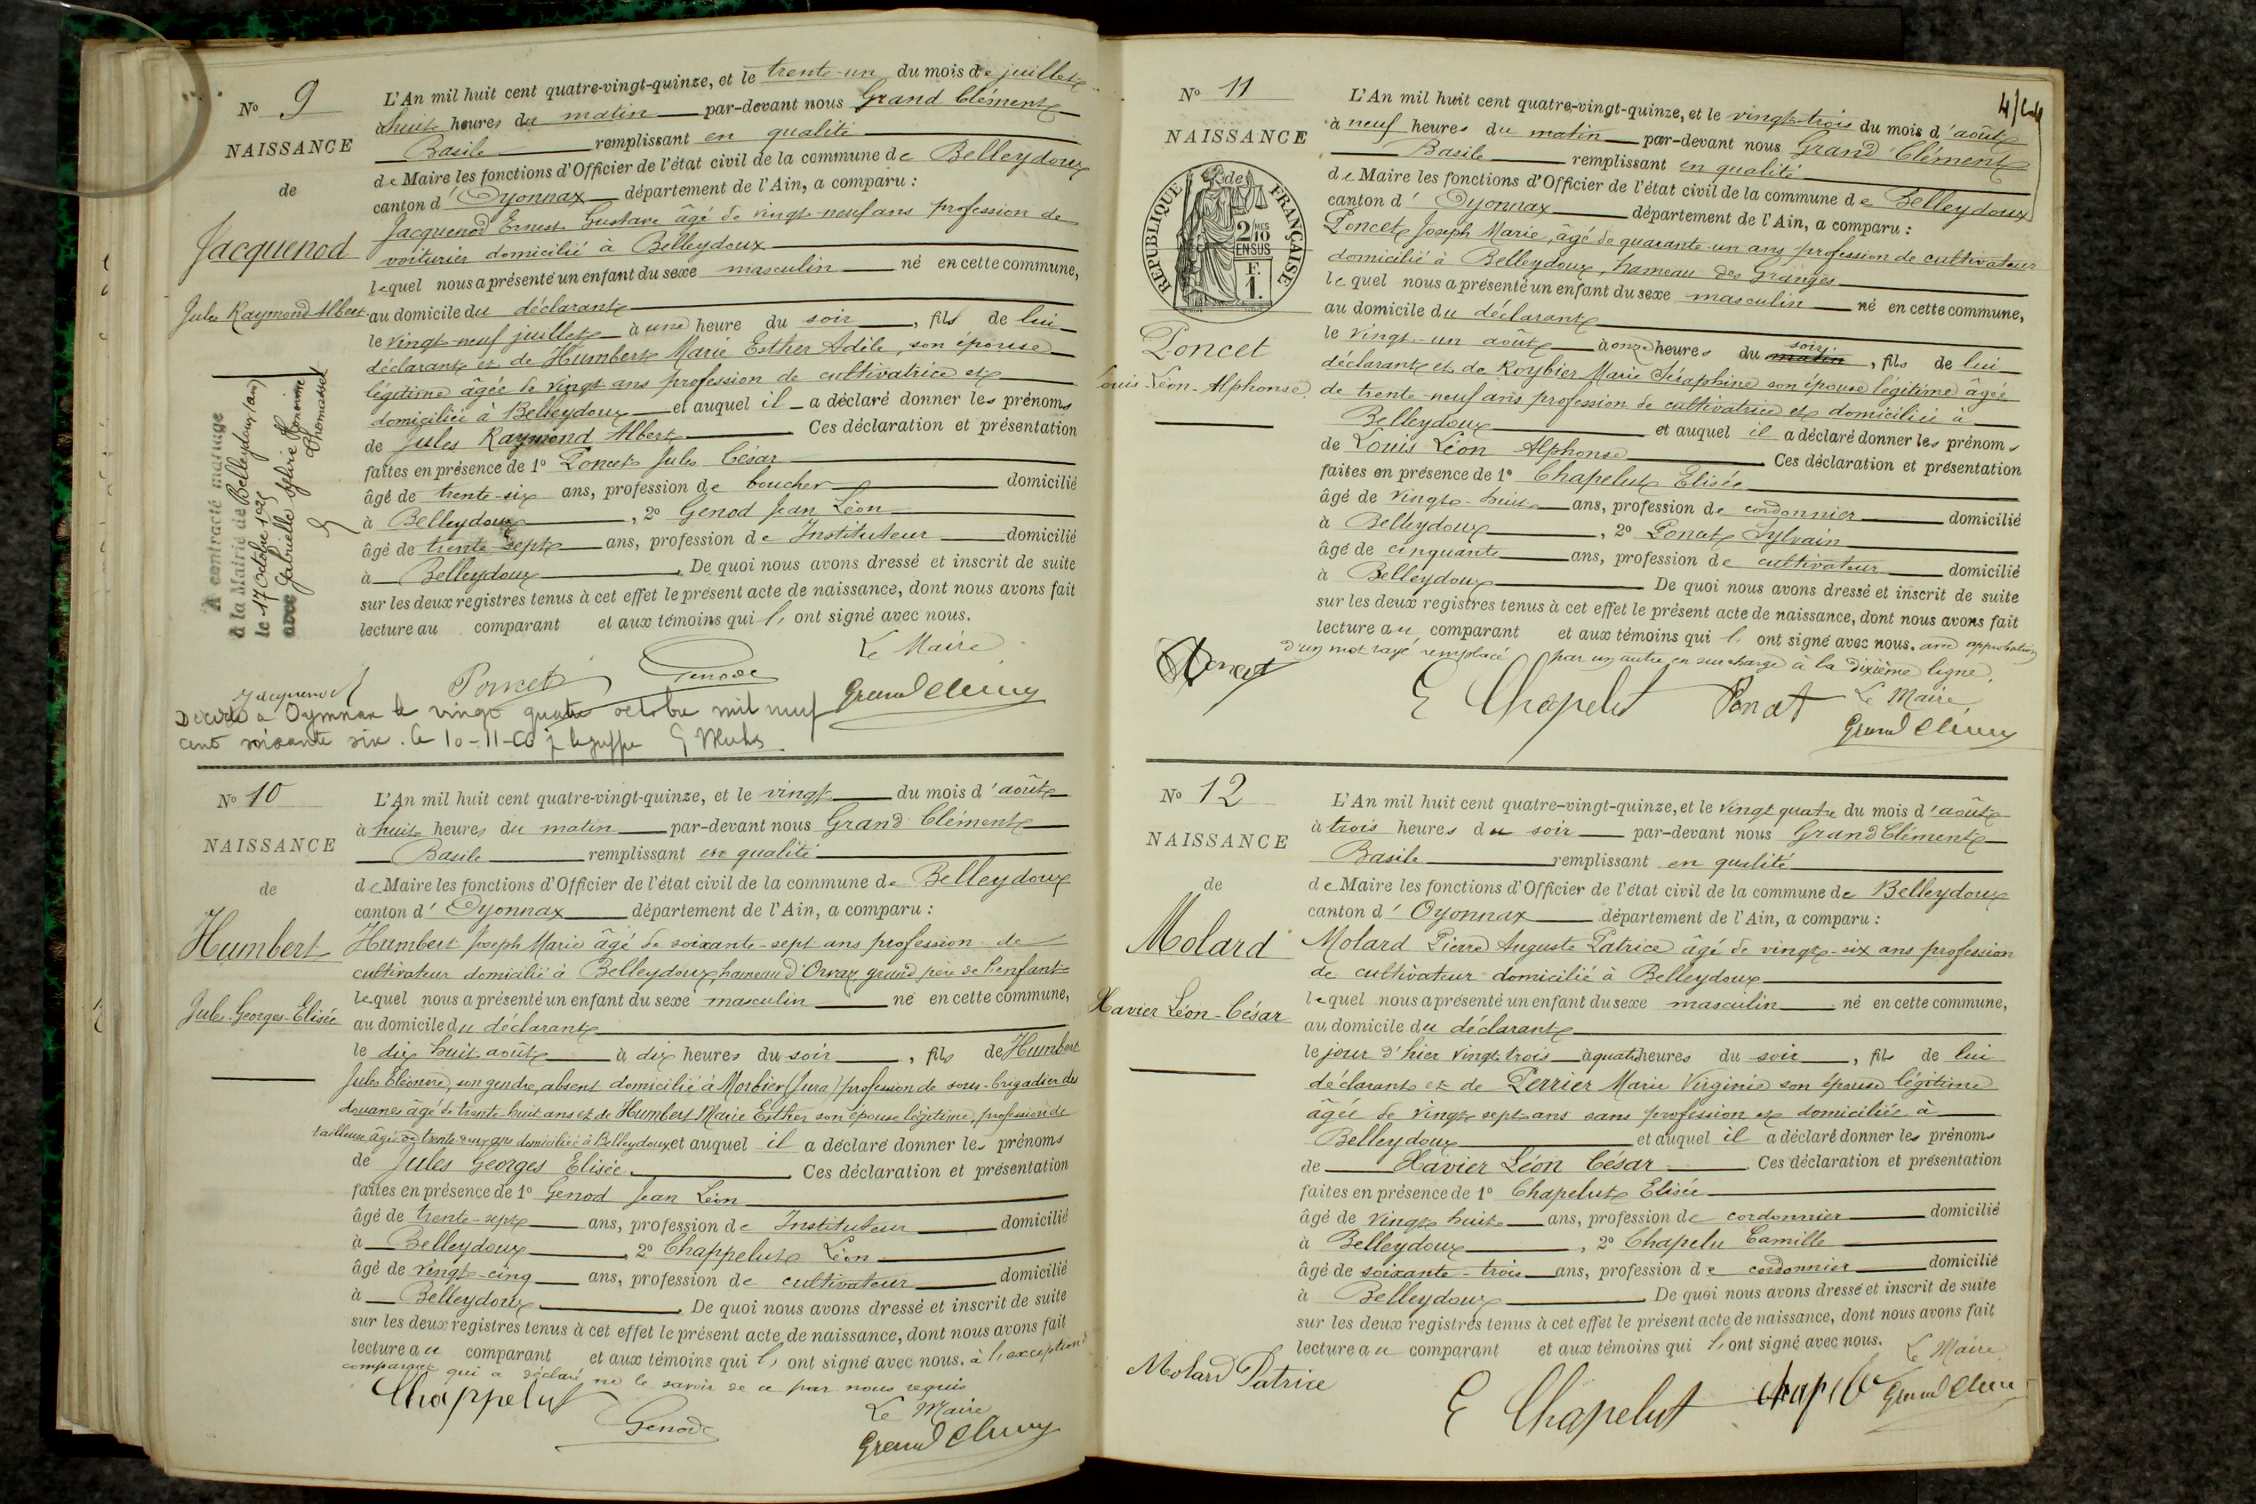 N° 9
NAISSANCE
de
Jacquenod
Jules Raymond Albert
A contracté mariage
à la Mairie de Belleydoux (Ain)
le 17 Octobre 1925
avec Gabrielle Honorine
L'An mil huit cent quatre-vingt-quinze, et le trente-un du mois de juillet
à huit heures du matin par-devant nous Grand Clément
Basile remplissant en qualité
de Maire les fonctions d'Officier de l'état civil de la commune de Belleydoux
canton d'Oyonnax département de l'Ain, a comparu :
Jacquenod Ernest Gustave âgé de vingt-neuf ans profession de
voiturier domicilié à Belleydoux
lequel nous a présenté un enfant du sexe masculin né en cette commune,
au domicile du déclarant
le vingt-neuf juillet à une heure du soir, fils de lui
déclarant et de Humbert Marie Esther Adèle, son épouse
légitime âgée de vingt ans profession de cultivatrice et
domiciliée à Belleydoux et auquel il a déclaré donner les prénoms
de Jules Raymond Albert Ces déclaration et présentation
faites en présence de 1° Poncet Jules César
âgé de trente-six ans, profession de boucher domicilié
à Belleydoux, 2° Genod Jean Léon
âgé de trente sept ans, profession de Instituteur domicilié
à Belleydoux. De quoi nous avons dressé et inscrit de suite
sur les deux registres tenus à cet effet le présent acte de naissance, dont nous avons fait
lecture au comparant et aux témoins qui l'ont signé avec nous.
Le Maire
Jacquenod Poncet Genod Grand Clément
Décédé à Oyonnax le vingt quatre octobre mil neuf
cent soixante six. le 10-11-66
N° 10
NAISSANCE
de
Humbert
Jules-Georges-Elisée
L'An mil huit cent quatre-vingt-quinze, et le vingt du mois d'août
à huit heures du matin par-devant nous Grand Clément
Basile remplissant en qualité
de Maire les fonctions d'Officier de l'état civil de la commune de Belleydoux
canton d'Oyonnax département de l'Ain, a comparu :
Humbert Joseph Marie âgé de soixante-sept ans profession de
cultivateur domicilié à Belleydoux, hameau d'Orvaz grand père de l'enfant
lequel nous a présenté un enfant du sexe masculin né en cette commune,
au domicile du déclarant
le dix huit août à dix heures du soir, fils de Humbert
Jules Eléonore, son gendre, absent domicilié à Morbier (Jura) profession de sous-brigadier des
douanes âgé de trente huit ans et de Humbert Marie Esther son épouse légitime, profession de
tailleuse âgée de trente deux ans domiciliée à Belleydoux et auquel il a déclaré donner les prénoms
de Jules Georges Elisée. Ces déclaration et présentation
faites en présence de 1° Genod Jean Léon
âgé de trente-sept ans, profession de Instituteur domicilié
à Belleydoux, 2° Chappelut Léon
âgé de vingt-cinq ans, profession de cultivateur domicilié
à Belleydoux. De quoi nous avons dressé et inscrit de suite
sur les deux registres tenus à cet effet le présent acte de naissance, dont nous avons fait
lecture au comparant et aux témoins qui l'ont signé avec nous. à l'exception du
comparant qui a déclaré ne le savoir de ce par nous requis
Chappelut Genod Le Maire
Grand Clément
4/4
N° 11
NAISSANCE
de
RÉPUBLIQUE FRANÇAISE
2 MES
10
EN SUS
F.
1.
Poncet
Louis-Léon-Alphonse
L'An mil huit cent quatre-vingt-quinze, et le vingt-trois du mois d'août
à neuf heures du matin par-devant nous Grand Clément
Basile remplissant en qualité
de Maire les fonctions d'Officier de l'état civil de la commune de Belleydoux
canton d'Oyonnax département de l'Ain, a comparu :
Poncet Joseph Marie, âgé de quarante-un ans profession de cultivateur
domicilié à Belleydoux, hameau des Granges
lequel nous a présenté un enfant du sexe masculin né en cette commune,
au domicile du déclarant
le vingt-un août à onze heures du matin soir, fils de lui
déclarant et de Roybier Marie Séraphine son épouse légitime âgée
de trente-neuf ans profession de cultivatrice et domiciliée à
Belleydoux et auquel il a déclaré donner les prénoms
de Louis Léon Alphonse. Ces déclaration et présentation
faites en présence de 1° Chapelut Elisée
âgé de vingt-huit ans, profession de cordonnier domicilié
à Belleydoux, 2° Ponat Sylvain
âgé de cinquante ans, profession de cultivateur domicilié
à Belleydoux De quoi nous avons dressé et inscrit de suite
sur les deux registres tenus à cet effet le présent acte de naissance, dont nous avons fait
lecture au comparant et aux témoins qui l'ont signé avec nous. avec approbation
d'un mot rayé remplacé par un autre en surcharge à la dixième ligne.
Poncet E Chapelut Ponat Le Maire
Grand Clément
N° 12
NAISSANCE
de
Molard
Xavier Léon-César
L'An mil huit cent quatre-vingt-quinze, et le vingt quatre du mois d'août
à trois heures du soir par-devant nous Grand Clément
Basile remplissant en qualité
de Maire les fonctions d'Officier de l'état civil de la commune de Belleydoux
canton d'Oyonnax département de l'Ain, a comparu :
Molard Pierre Auguste Patrice âgé de vingt-six ans profession
de cultivateur domicilié à Belleydoux
lequel nous a présenté un enfant du sexe masculin né en cette commune,
au domicile du déclarant
le jour d'hier vingt-trois à quatre heures du soir, fils de lui
déclarant et de Perrier Marie Virginie son épouse légitime
âgée de vingt sept ans sans profession et domiciliée à
Belleydoux et auquel il a déclaré donner les prénoms
de Xavier Léon César. Ces déclaration et présentation
faites en présence de 1° Chapelut Elisée
âgé de vingt huit ans, profession de cordonnier domicilié
à Belleydoux, 2° Chapelu Camille
âgé de soixante-trois ans, profession de cordonnier domicilié
à Belleydoux. De quoi nous avons dressé et inscrit de suite
sur les deux registres tenus à cet effet le présent acte de naissance, dont nous avons fait
lecture au comparant et aux témoins qui l'ont signé avec nous. Le Maire
Molard Patrice E Chapelut Chapelu Grand Clément